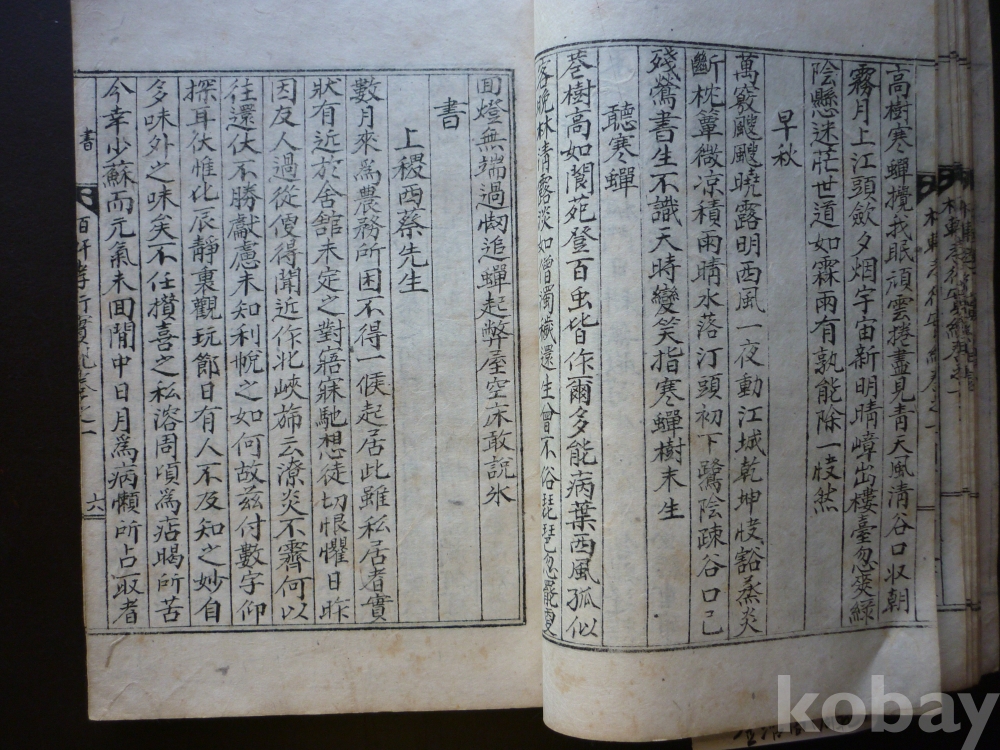 高樹寒蟬攪我眠頑雲捲盡見靑天風淸谷口収朝
霧月上江頭斂夕烟宇宙新明晴嶂出樓臺忽爽綠
陰懸迷茫世道如霖雨有孰能除一快然
早秋
萬竅颼颼曉露明西風一夜動江城乾坤快豁蒸炎
斷枕簟微凉積雨晴水落汀頭初下鷺陰疎谷口已
殘鶯書生不識天時變笑指寒蟬樹末生
聽寒蟬
巷樹高如閬苑登百虫皆作爾多能病葉西風孤似
客晩林淸露淡如僧濁穢還生曾不俗琵琶忽罷更
回燈無端過閣追蟬起弊屋空床敢說氷
書
上稷西蔡先生
數月來爲農務所困不得一候起居此雖私居者實
狀有近於舍舘未定之對寤寐馳想徒切恨懼日昨
因友人過從傻得聞近作北峽旆云潦炎不霽何以
往還伏不勝獻慮未知利帨之如何故玆付數字仰
探耳伏惟化辰靜裏觀玩節日有人不及知之妙自
多味外之味矣不任攢喜之私溶周頃爲痁暍所苦
今幸少蘇而元氣未回閒中日月爲病懶所占取者
書
六
kobay